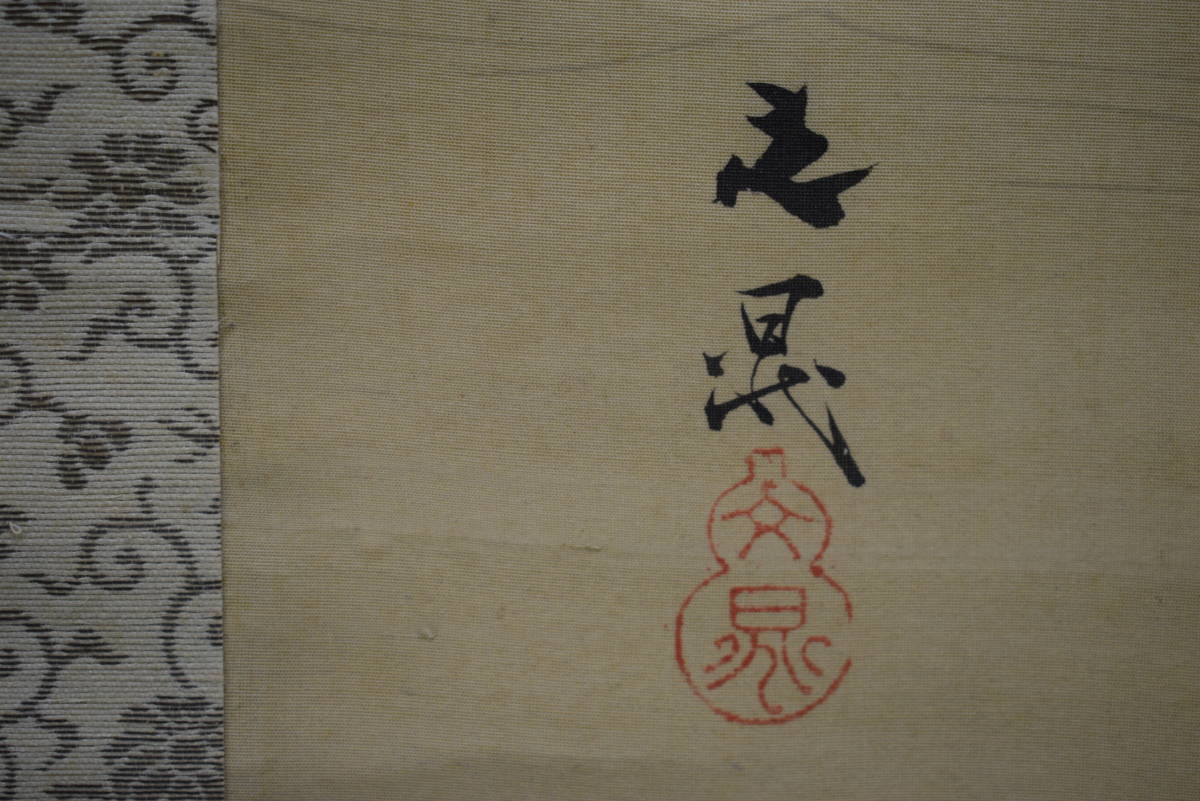 文晁
文晁